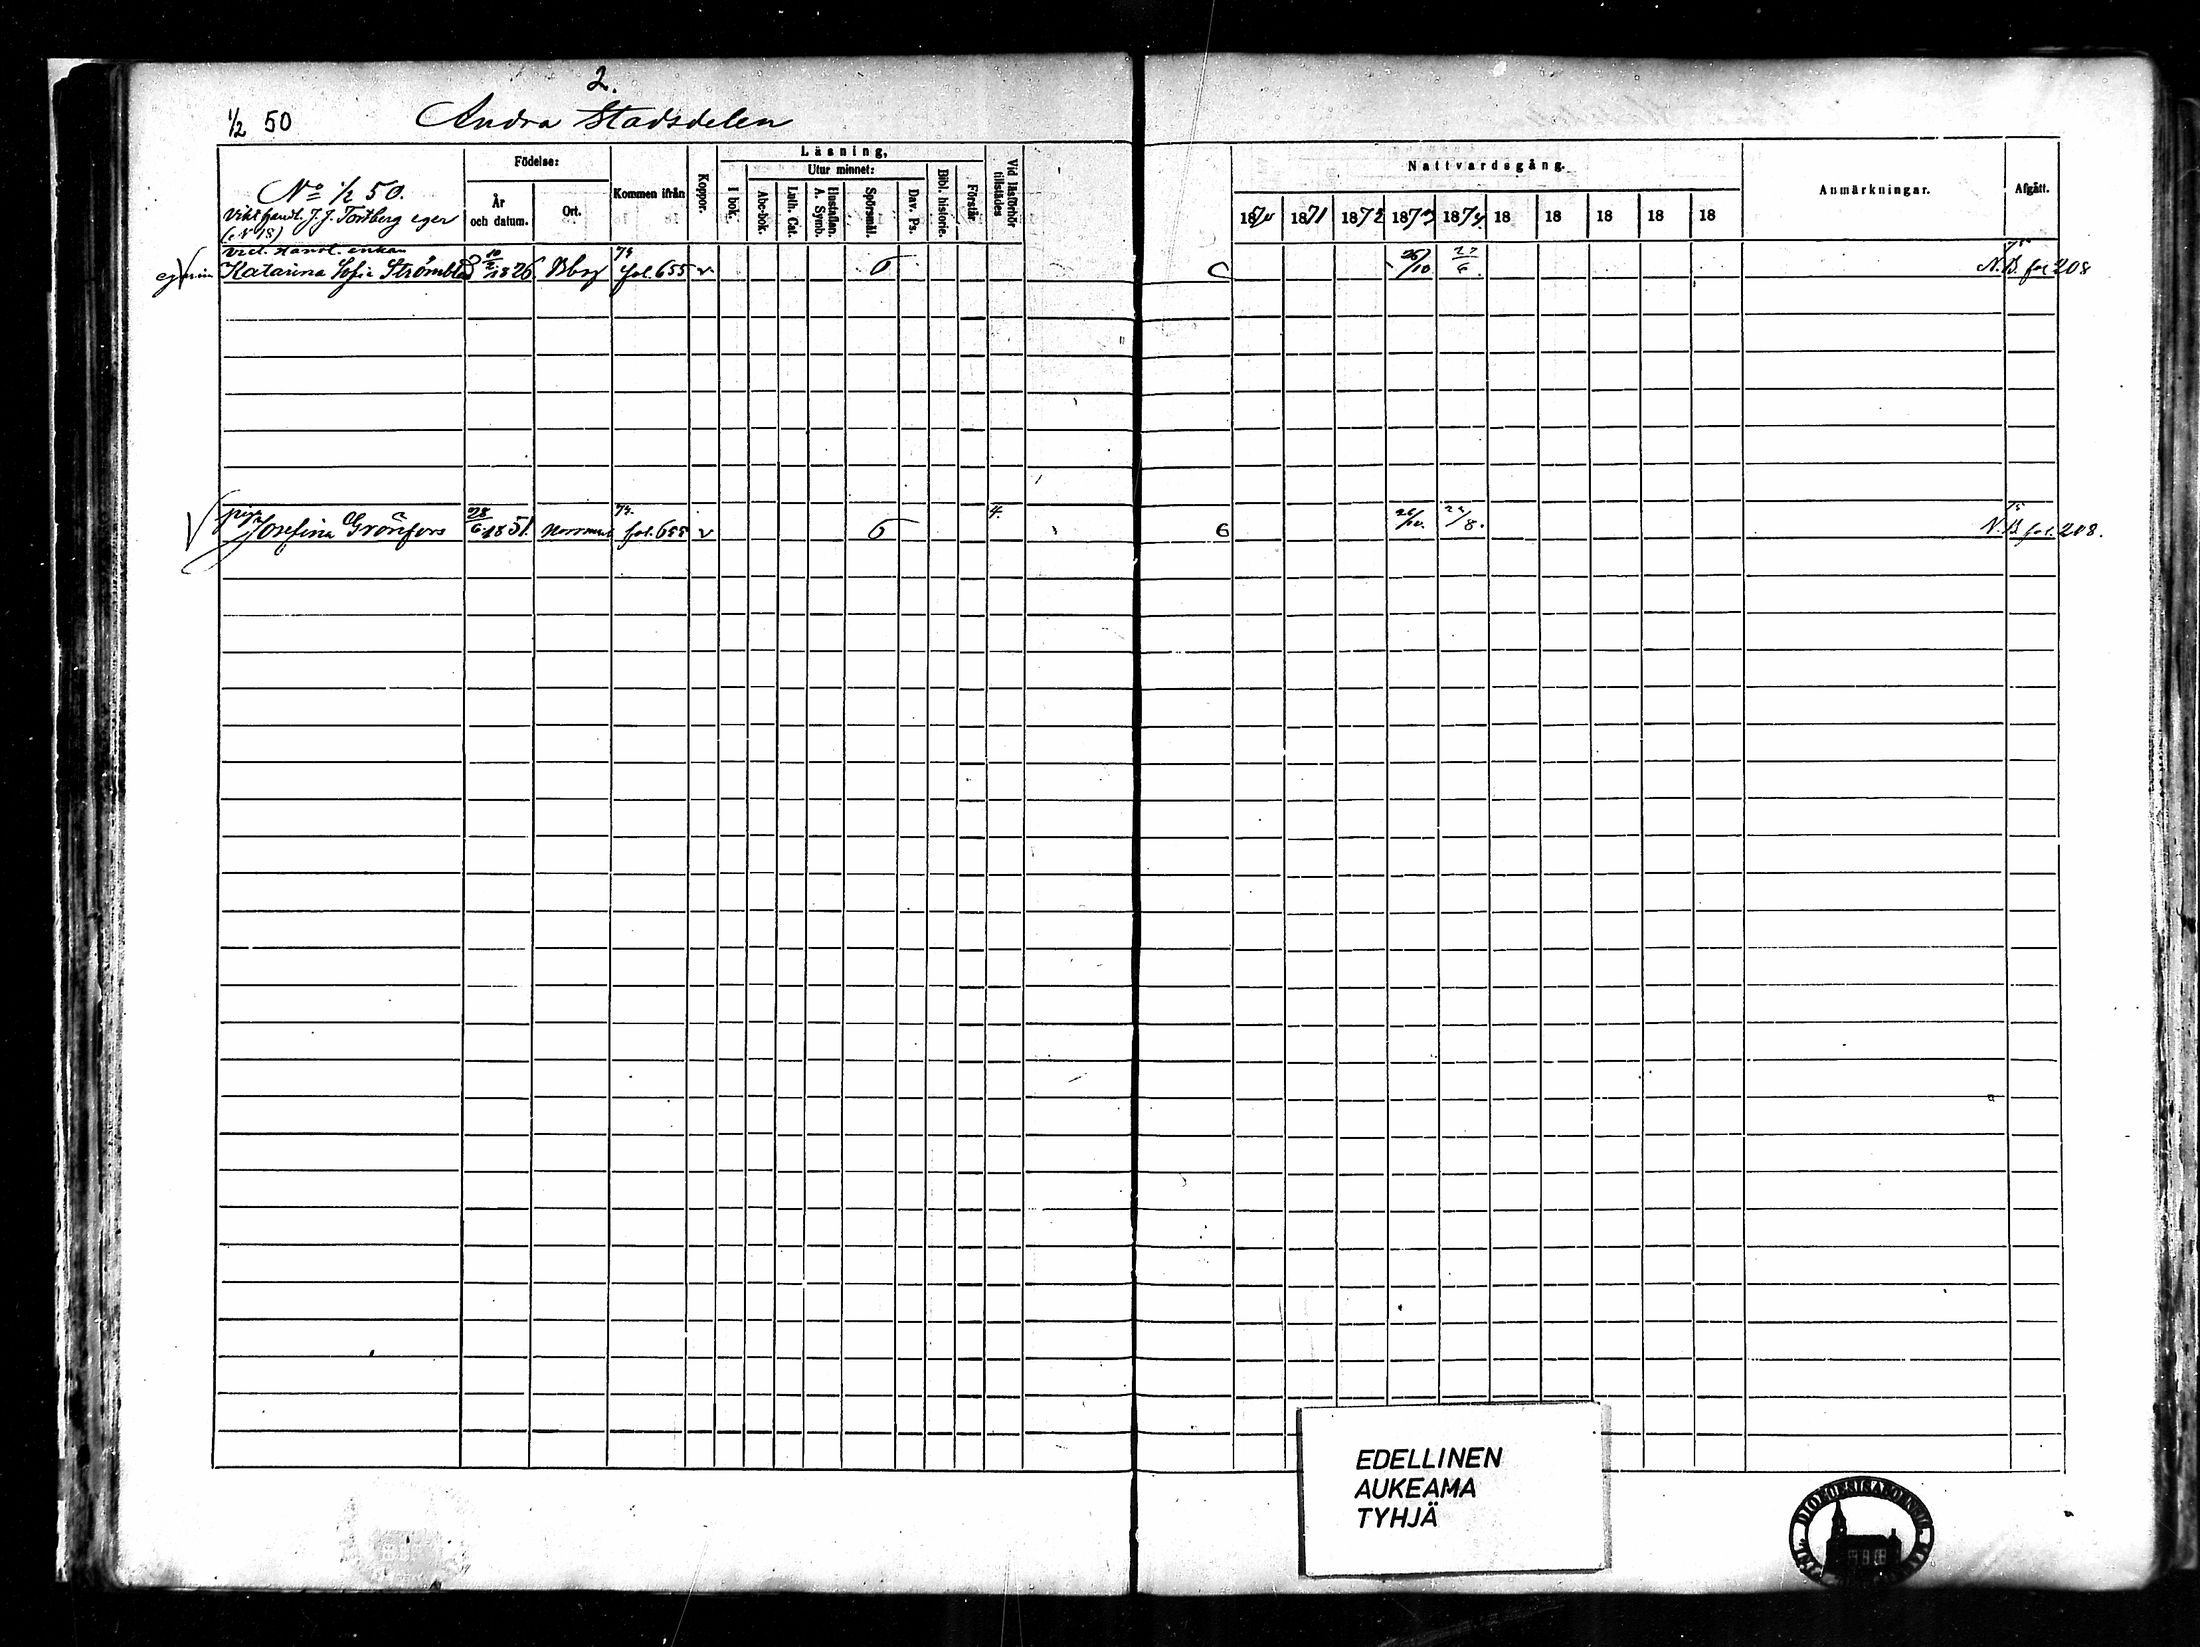 2.
1/2 50 Andra Stadsdelen
Födelse:
År och datum.
Ort.
Kommen ifrån
Koppor.
Läsning,
I bok.
Utur minnet:
Abc-bok.
Luth. Cat.
Hustaflan. A. Symb.
Spörsmål.
Dav. Ps.
Bibl. historie.
Förstår
Vid läsförhör tillstädes
Nattvardsgång.
1870 1871 1872 1873 1874. 18 18 18 18 18
Anmärkningar.
Afgått.
No 1/2 50.
Vikt. handl. J. J. Tortberg eger
(: N 18)
Vict. Handl. enkan
Katarina Sofia Strömblad 10/2 1826. Bbog 73 fol. 655 v C 26/10 27/6 75 N.B. fol 208
pig. Josefina Grönfors 28/6 1851. Norrmark 73. fol. 655 v 4. 6 26/10. 8. 75 N.B fol. 208.
EDELLINEN
AUKEAMA
TYHJÄ